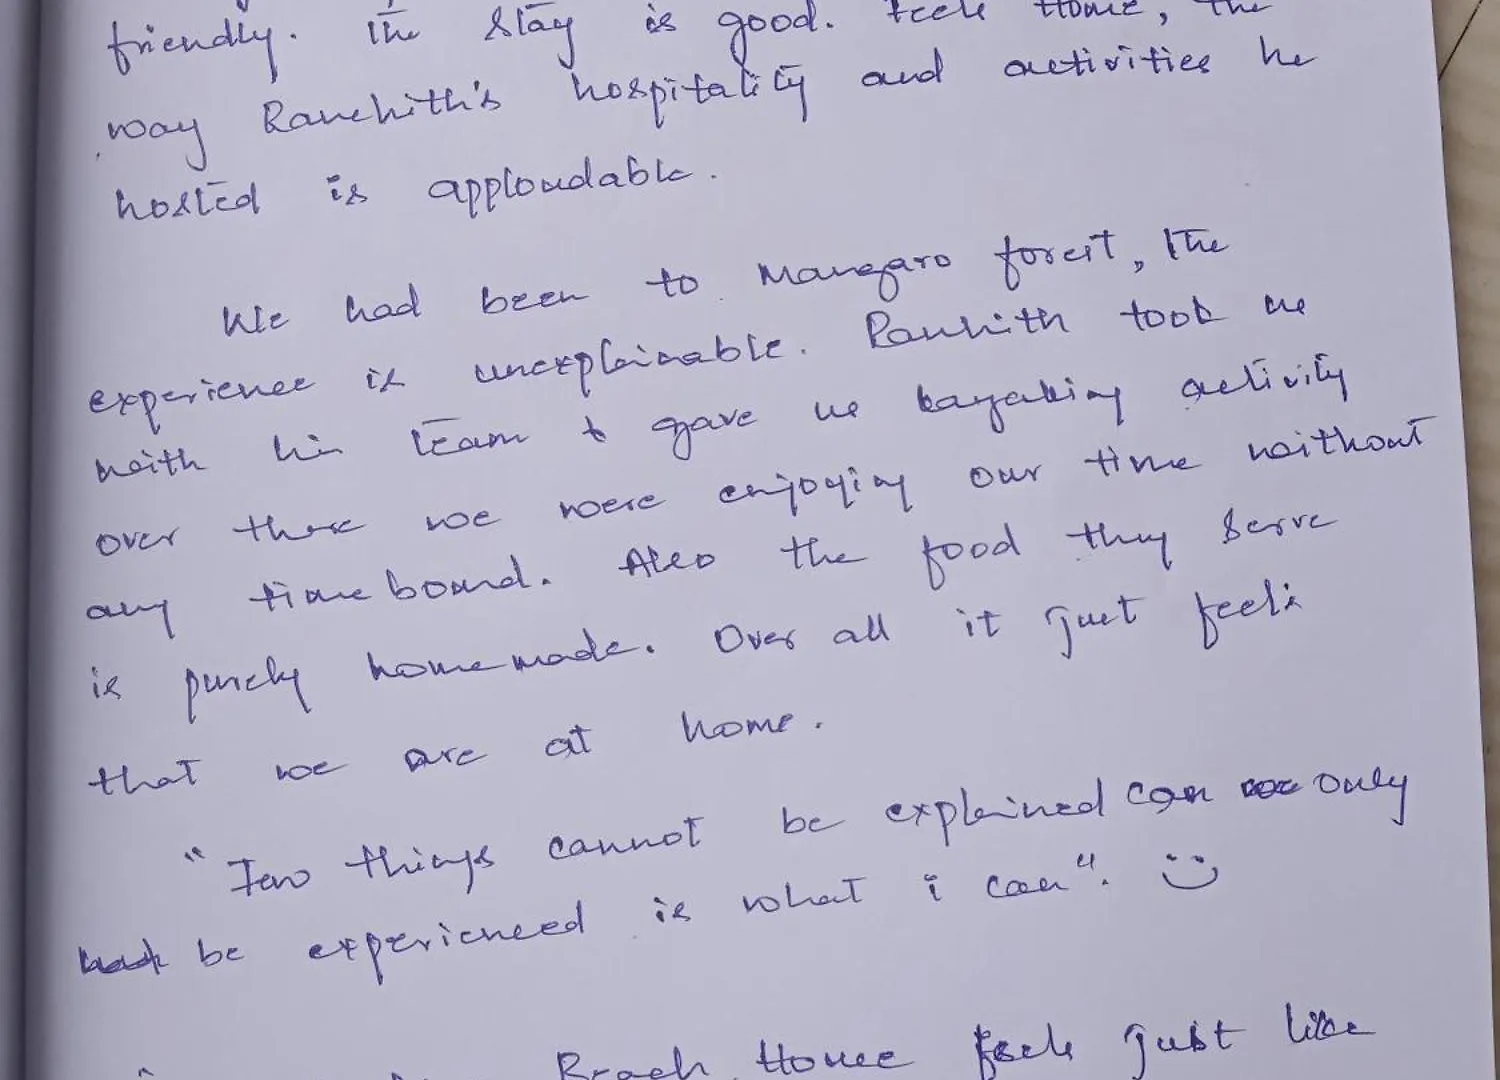 friendly. The stay is good. Feels Home, the
way Ranchith's hospitality and activities he
hosted is apploudable.
We had been to Mangaro forest, the
experience is unexplainable. Ranhith took us
with his team & gave us kayaking activity
over there we were enjoying our time without
any time bound. Also the food they serve
is purely homemade. Over all it just feels
that we are at home.
"Few things cannot be explained can only
be experienced is what i can". :)
Beach House feels just like